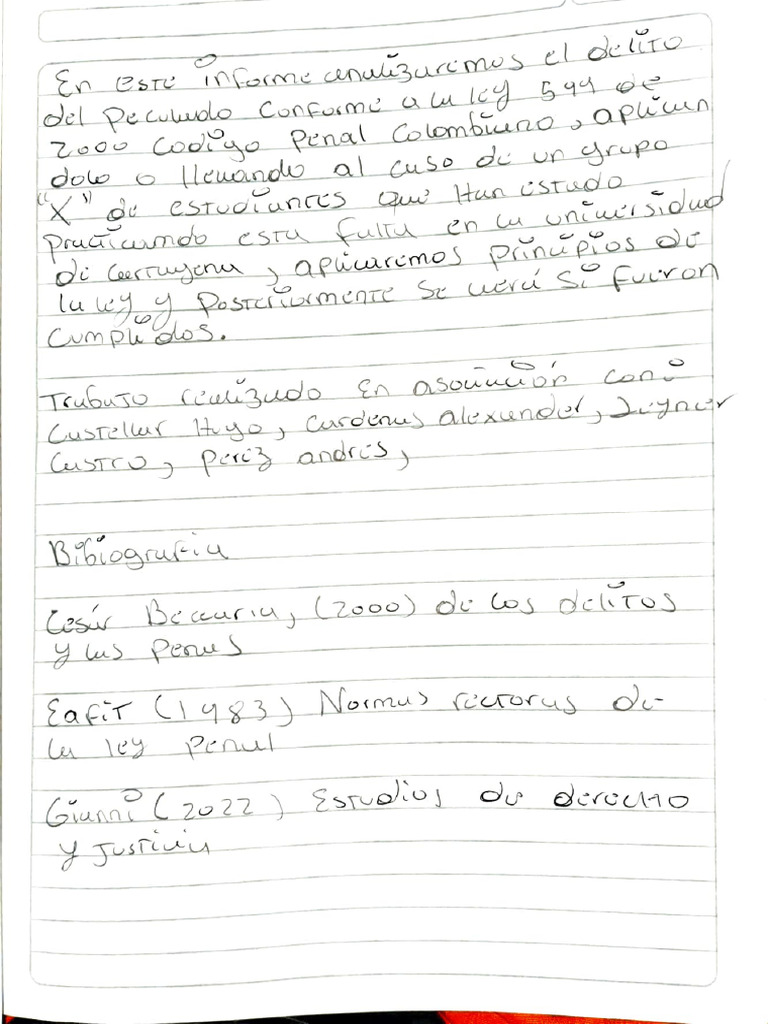 En este informe analizaremos el delito
del peculado conforme a la ley 599 de
2000 codigo Penal Colombiano, aplican
dolo o llevando al caso de un grupo
"X" de estudiantes que Han estado
practicando esta falta en la universidad
de cartagena, aplicaremos principios de
la ley y Posteriormente se verá si fueron
cumplidos.
Trabajo realizado en asociación con:
Castellar Hugo, Cardenas alexander, Jeyner
Castro, perez andres,
Bibiografia
Cesár Beccaria, (2000) de los delitos
y las penas
Eafit (1983) Normas rectoras de
la ley penal
Gianni (2022) Estudios de derecho
y justicia